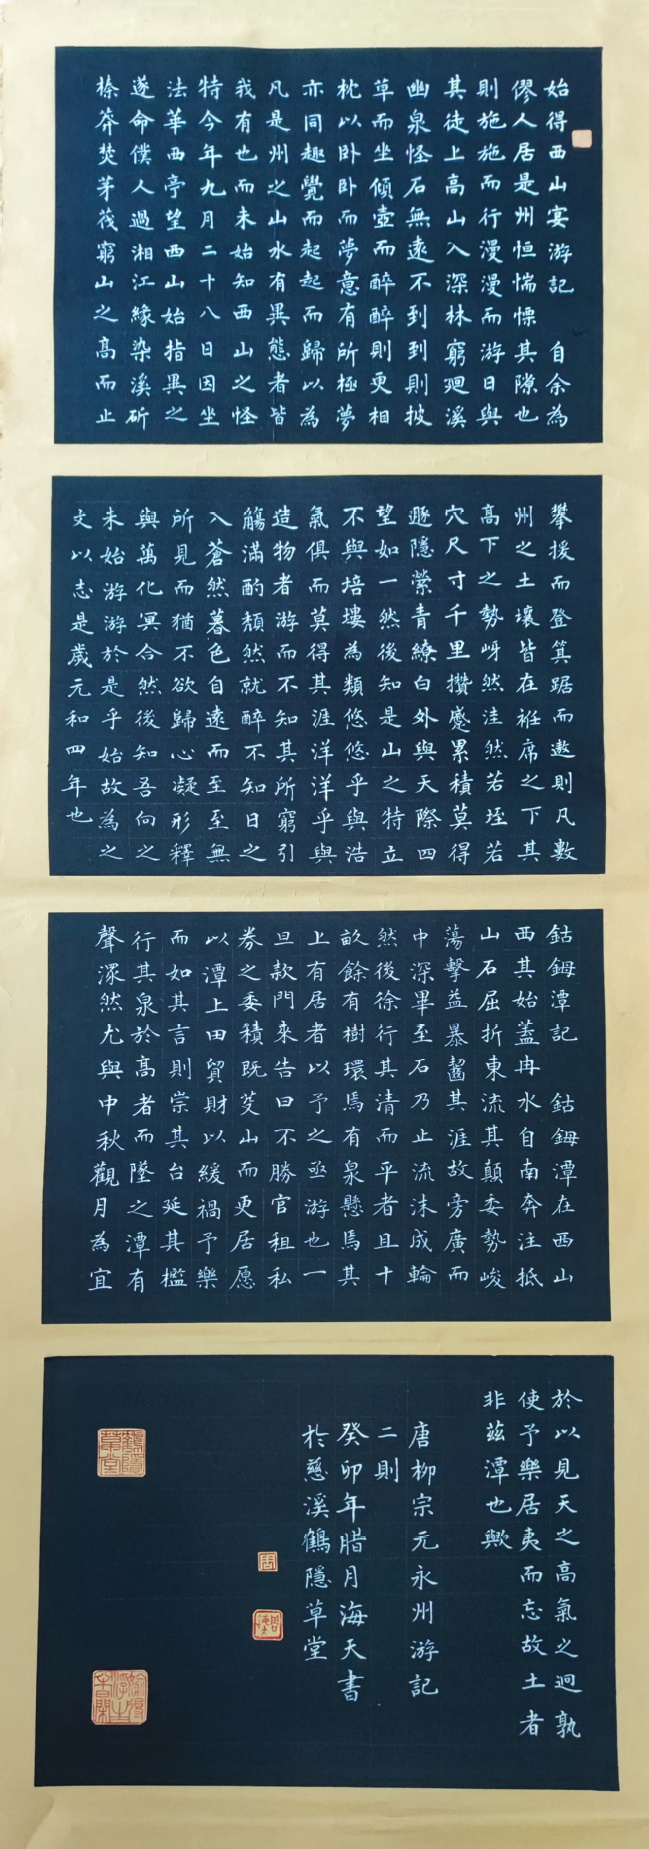 始得西山宴游記 自余為
僇人居是州恒惴慄其隙也
則施施而行漫漫而游日與
其徒上高山入深林窮廻溪
幽泉怪石無遠不到到則披
草而坐傾壺而醉醉則更相
枕以卧卧而夢意有所極夢
亦同趣覺而起起而歸以為
凡是州之山水有異態者皆
我有也而未始知西山之怪
特今年九月二十八日因坐
法華西亭望西山始指異之
遂命僕人過湘江緣染溪斫
榛莽焚茅茷窮山之高而止
攀援而登箕踞而遨則凡數
州之土壤皆在袵席之下其
高下之勢岈然洼然若垤若
穴尺寸千里攢蹙累積莫得
遯隱縈青繚白外與天際四
望如一然後知是山之特立
不與培塿為類悠悠乎與浩
氣俱而莫得其涯洋洋乎與
造物者游而不知其所窮引
觴滿酌頹然就醉不知日之
入蒼然暮色自遠而至至無
所見而猶不欲歸心凝形釋
與萬化冥合然後知吾向之
未始游游於是乎始故為之
文以志是歲元和四年也
鈷鉧潭記 鈷鉧潭在西山
西其始蓋冉水自南奔注抵
山石屈折東流其顛委勢峻
蕩擊益暴齧其涯故旁廣而
中深畢至石乃止流沫成輪
然後徐行其清而平者且十
畝餘有樹環焉有泉懸焉其
上有居者以予之亟游也一
旦款門來告曰不勝官租私
券之委積既芟山而更居愿
以潭上田貿財以緩禍予樂
而如其言則崇其台延其檻
行其泉於高者而墜之潭有
聲潀然尤與中秋觀月為宜
於以見天之高氣之迥孰
使予樂居夷而忘故土者
非茲潭也歟
唐柳宗元永州游記
二則
癸卯年腊月海天書
於慈溪鶴隱草堂
鶴隱草堂